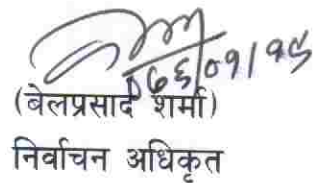 ०७६/०१/१५
(बेलप्रसाद शर्मा)
निर्वाचन अधिकृत